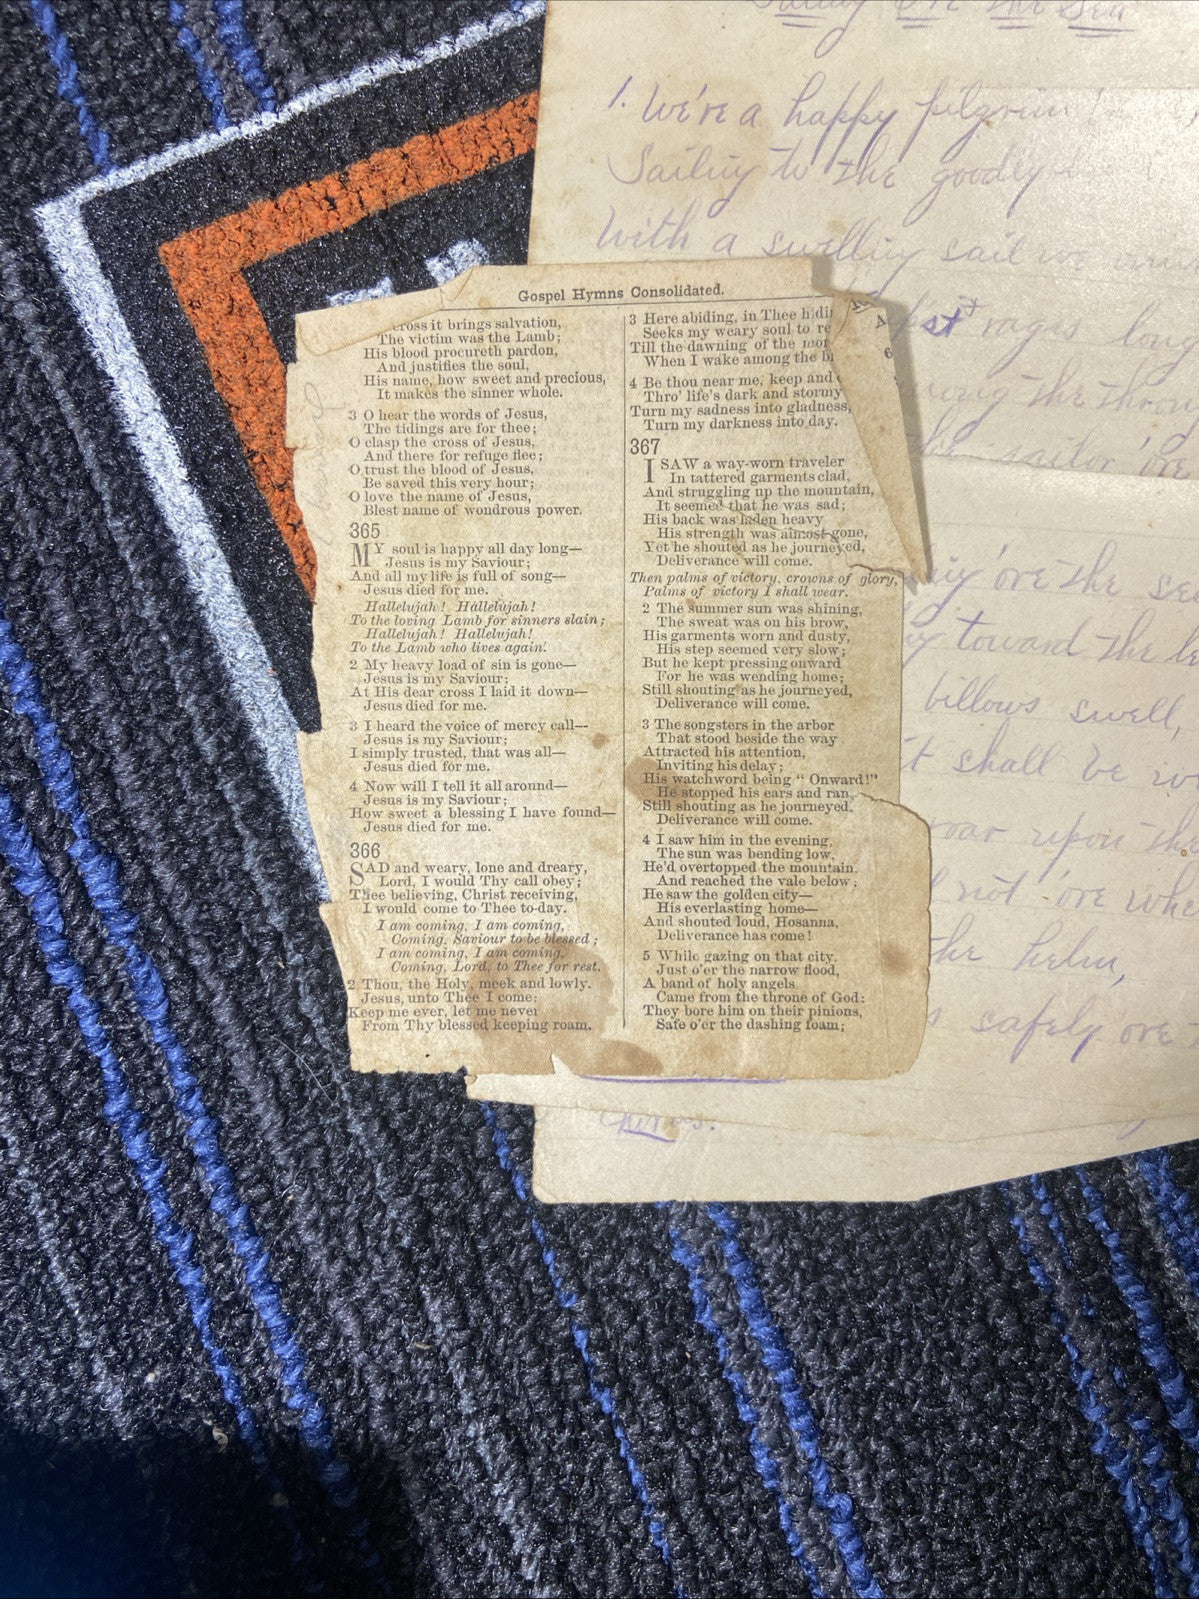 Gospel Hymns Consolidated.
cross it brings salvation,
The victim was the Lamb;
His blood procureth pardon,
And justifies the soul,
His name, how sweet and precious,
It makes the sinner whole.
3 O hear the words of Jesus,
The tidings are for thee;
O clasp the cross of Jesus,
And there for refuge flee;
O trust the blood of Jesus,
Be saved this very hour;
O love the name of Jesus,
Blest name of wondrous power.
365
MY soul is happy all day long—
Jesus is my Saviour;
And all my life is full of song—
Jesus died for me.
Hallelujah! Hallelujah!
To the loving Lamb for sinners slain;
Hallelujah! Hallelujah!
To the Lamb who lives again.
2 My heavy load of sin is gone—
Jesus is my Saviour;
At His dear cross I laid it down—
Jesus died for me.
3 I heard the voice of mercy call—
Jesus is my Saviour;
I simply trusted, that was all—
Jesus died for me.
4 Now will I tell it all around—
Jesus is my Saviour;
How sweet a blessing I have found—
Jesus died for me.
366
SAD and weary, lone and dreary,
Lord, I would Thy call obey;
Thee believing, Christ receiving,
I would come to Thee to-day.
I am coming, I am coming,
Coming, Saviour to be blessed;
I am coming, I am coming,
Coming, Lord, to Thee for rest.
2 Thou, the Holy, meek and lowly.
Jesus, unto Thee I come;
Keep me ever, let me never
From Thy blessed keeping roam.
3 Here abiding, in Thee hidi
Seeks my weary soul to re
Till the dawning of the mor
When I wake among the bl
4 Be thou near me, keep and
Thro' life's dark and stormy
Turn my sadness into gladness,
Turn my darkness into day.
367
I SAW a way-worn traveler
In tattered garments clad,
And struggling up the mountain,
It seemed that he was sad;
His back was laden heavy
His strength was almost gone,
Yet he shouted as he journeyed,
Deliverance will come.
Then palms of victory, crowns of glory,
Palms of victory I shall wear.
2 The summer sun was shining,
The sweat was on his brow,
His garments worn and dusty,
His step seemed very slow;
But he kept pressing onward
For he was wending home;
Still shouting as he journeyed,
Deliverance will come.
3 The songsters in the arbor
That stood beside the way
Attracted his attention,
Inviting his delay;
His watchword being "Onward!"
He stopped his ears and ran,
Still shouting as he journeyed,
Deliverance will come.
4 I saw him in the evening,
The sun was bending low,
He'd overtopped the mountain,
And reached the vale below;
He saw the golden city—
His everlasting home—
And shouted loud, Hosanna,
Deliverance has come!
5 While gazing on that city,
Just o'er the narrow flood,
A band of holy angels
Came from the throne of God:
They bore him on their pinions,
Safe o'er the dashing foam;
Sailing O're the Sea
1. We're a happy pilgrim
Sailing to the goodly
With a swelling sail we
rages long
the throng
the sailor 'ore
'ore the sea
toward the
billows swell,
it shall be
roar upon the
not 'ore
the helm,
safely 'ore
Chorus.